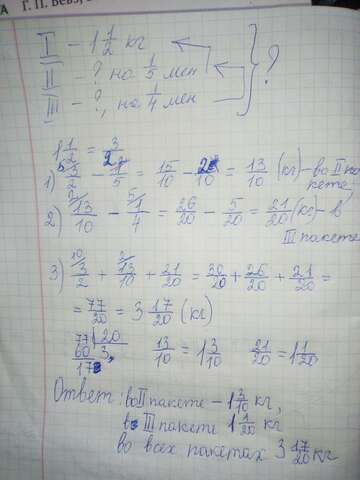 А Г. П. Бевз,
I – 1 1/2 кг
II – ? на 1/5 мен
III – ?, на 1/4 мен
?
1 1/2 = 3/2
1) 3/2 - 1/5 = 15/10 - 2/10 = 13/10 (кг) – во II па
кете,
2) 13/10 - 1/4 = 26/20 - 5/20 = 21/20 (кг) – в
III пакете
3) 3/2 + 13/10 + 21/20 = 30/20 + 26/20 + 21/20 =
= 77/20 = 3 17/20 (кг)
77 | 20
60 3,
17
13/10 = 1 3/10 21/20 = 1 1/20
Ответ: во II пакете – 1 3/10 кг,
в III пакете 1 1/20 кг
во всех пакетах 3 17/20 кг